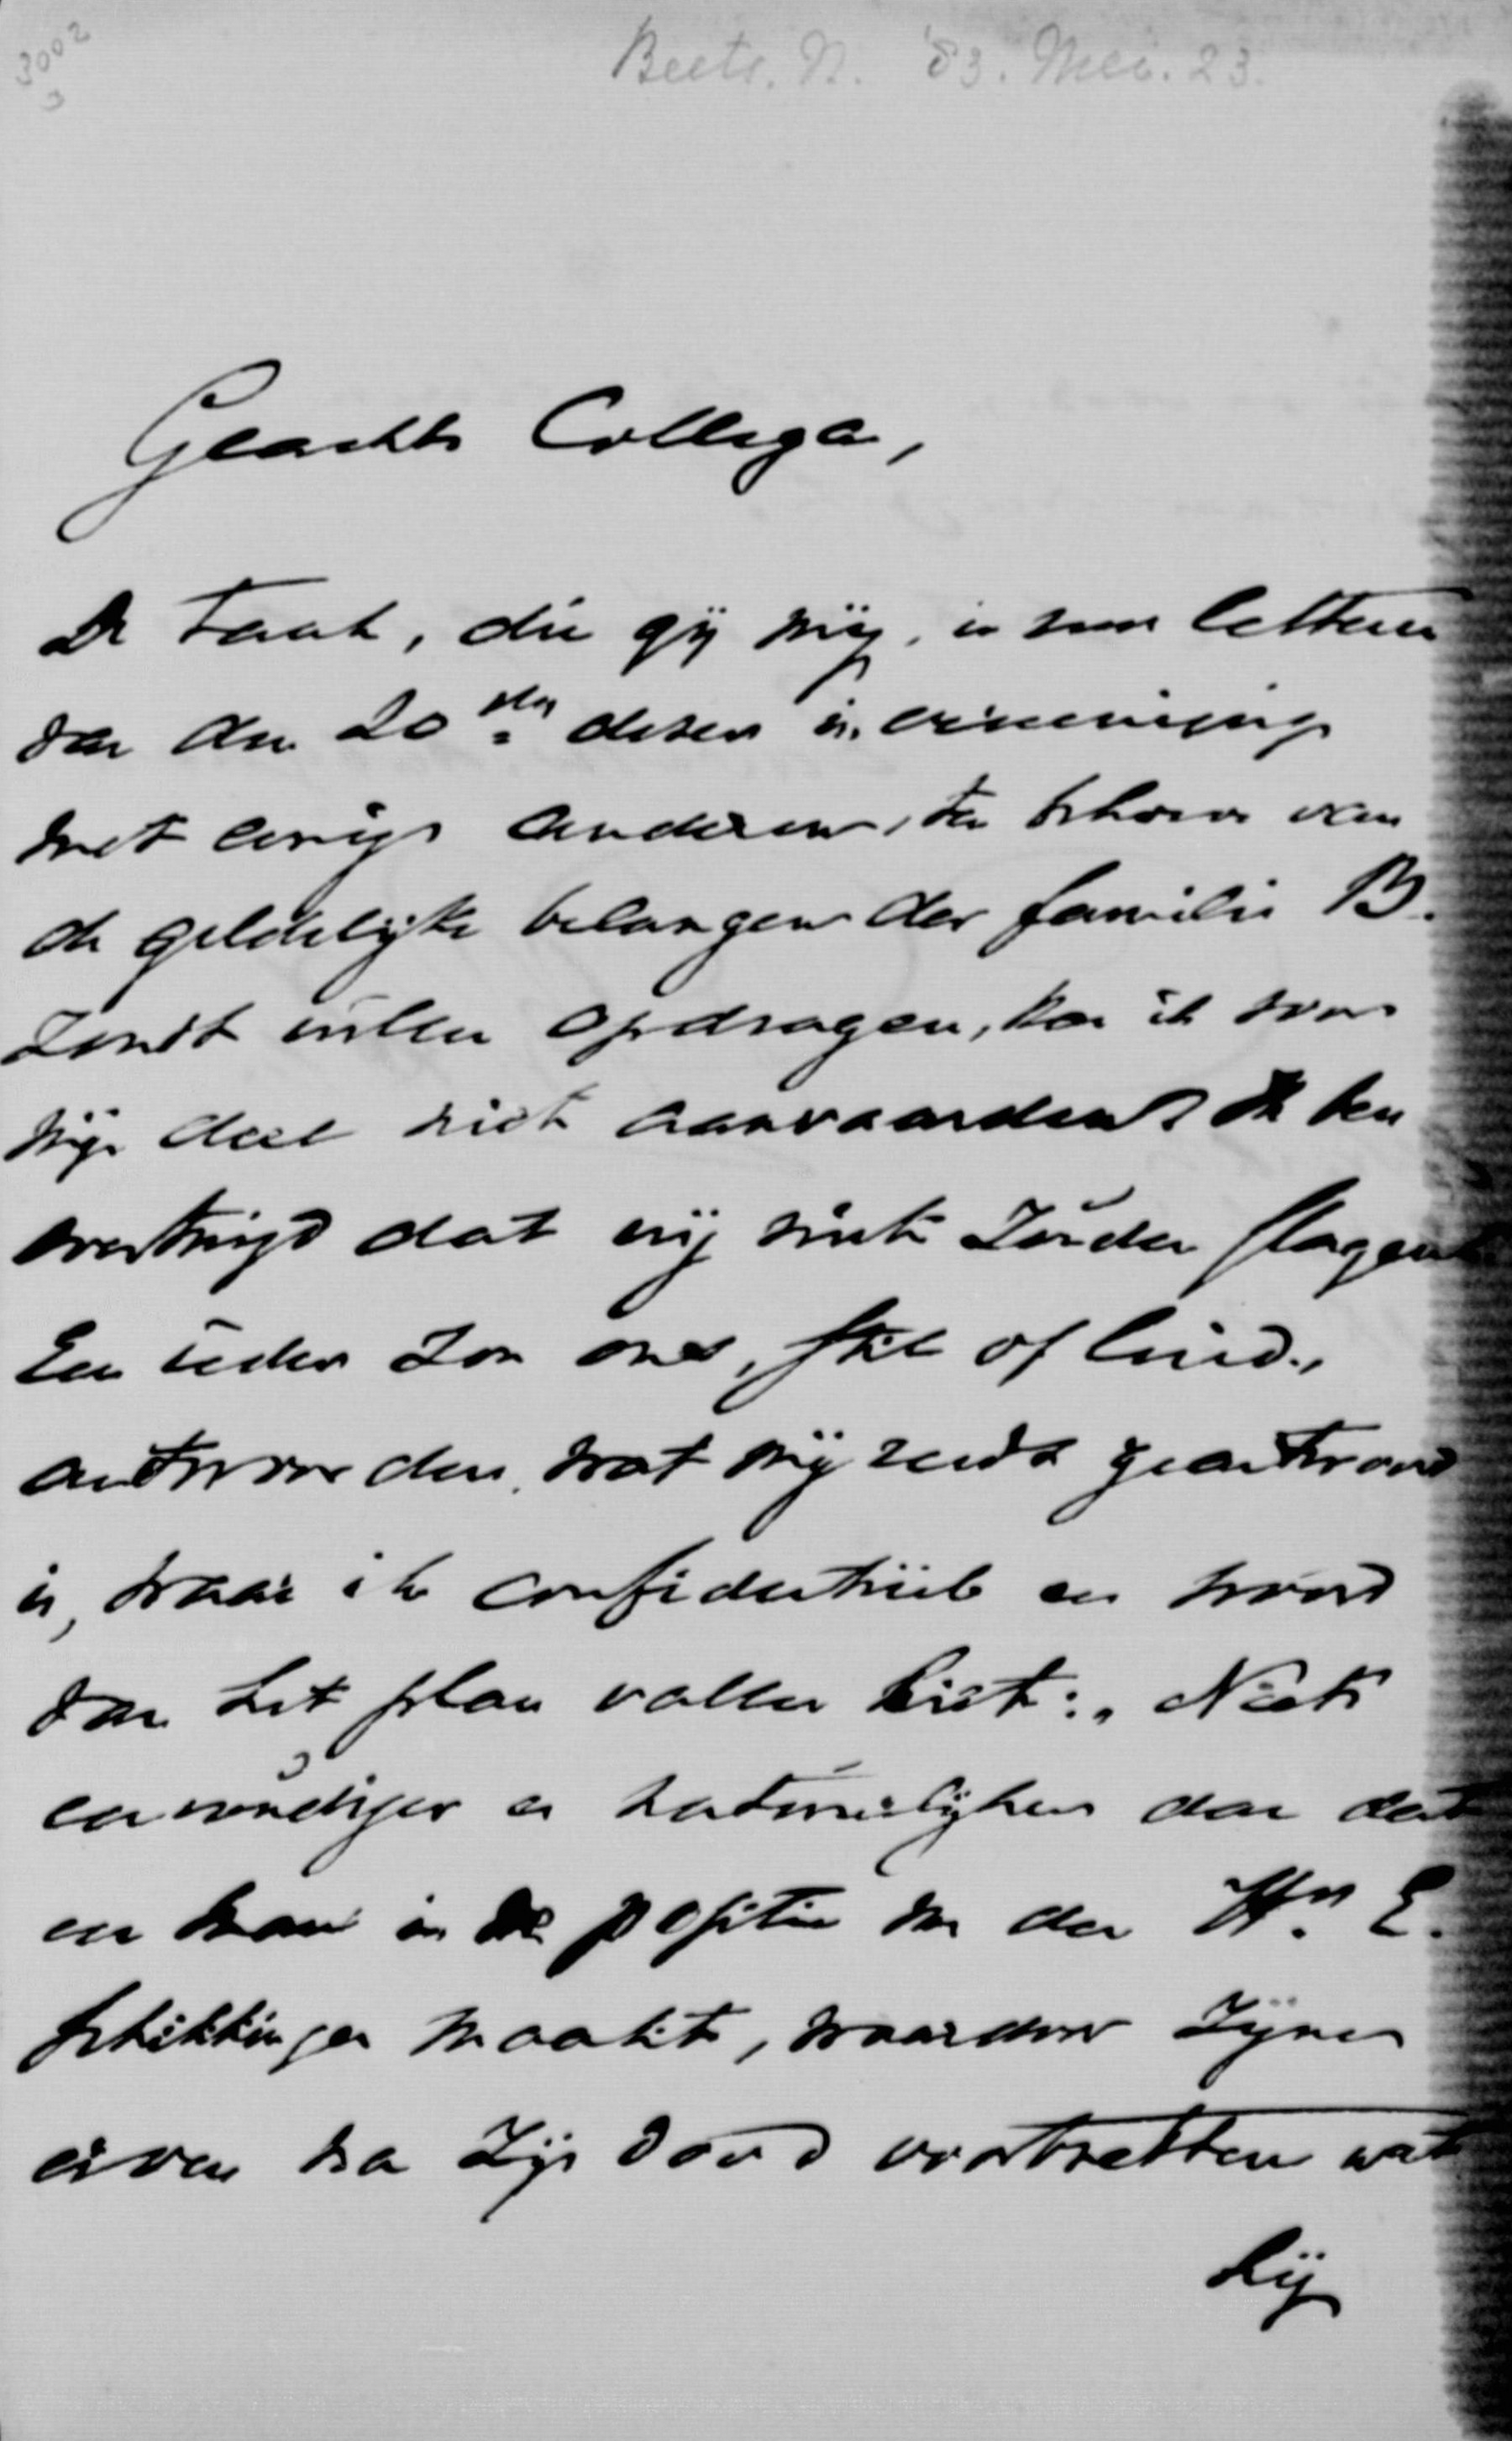 3002
Beets. N. '83. Mei. 23.
Geachte Collega,
De taak, die gij mij, in uwe letteren
van den 20sten dezer in vereeniging
met eenige anderen, ten behoeve van
de geldelijke belangen der familie B.
zoudt willen opdragen, kan ik voor
mijn deel niet aanvaarden. Ik ben
overtuigd dat wij niet zouden slagen
Een ieder zou ons, stil of luid,
antwoorden, wat mij reeds geantwoord
is, waar ik confidentieel een woord
van het plan vallen liet: „Niets
eenvoudiger en natuurlijker dan dat
een man in de positie van den Hr. E.
schikkingen maakte, waardoor zijne
erven na zijn dood voortzetten wat
hij